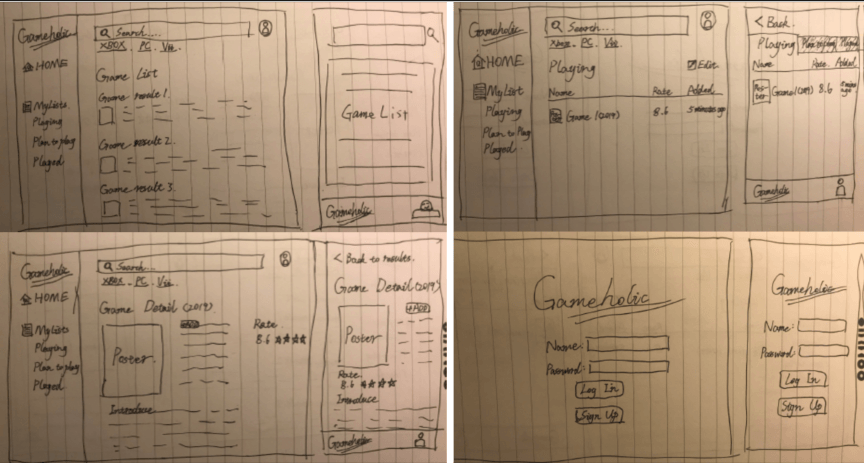 Gameholic
HOME
My Lists
Playing
Plan to play
Played
Search....
XBOX. PC. Vita.
Game List
Game result 1.
Game result 2.
Game result 3.
Game List
Gameholic
Gameholic
HOME
My List
Playing
Plan to Play
Played.
Search...
Xbox. PC. Vita.
Playing
Edit
Name Rate Added
Game 1(2019) 8.6 5 minutes ago
< Back.
Playing Plan to play Played
Name Rate Added.
Poster Game1(2019) 8.6 5 mins ago
Gameholic
Gameholic
HOME
My Lists
Playing
Plan to play
Played
Search...
XBOX. PC. Vita.
Game Detail (2019)
Poster.
Rate.
8.6
Introduce
< Back to results.
Game Detail (2019)
Poster
Rate.
8.6
Introduce
Gameholic
Gameholic
Name:
Password:
Log In
Sign Up
Gameholic
Name:
Password:
Log In
Sign Up